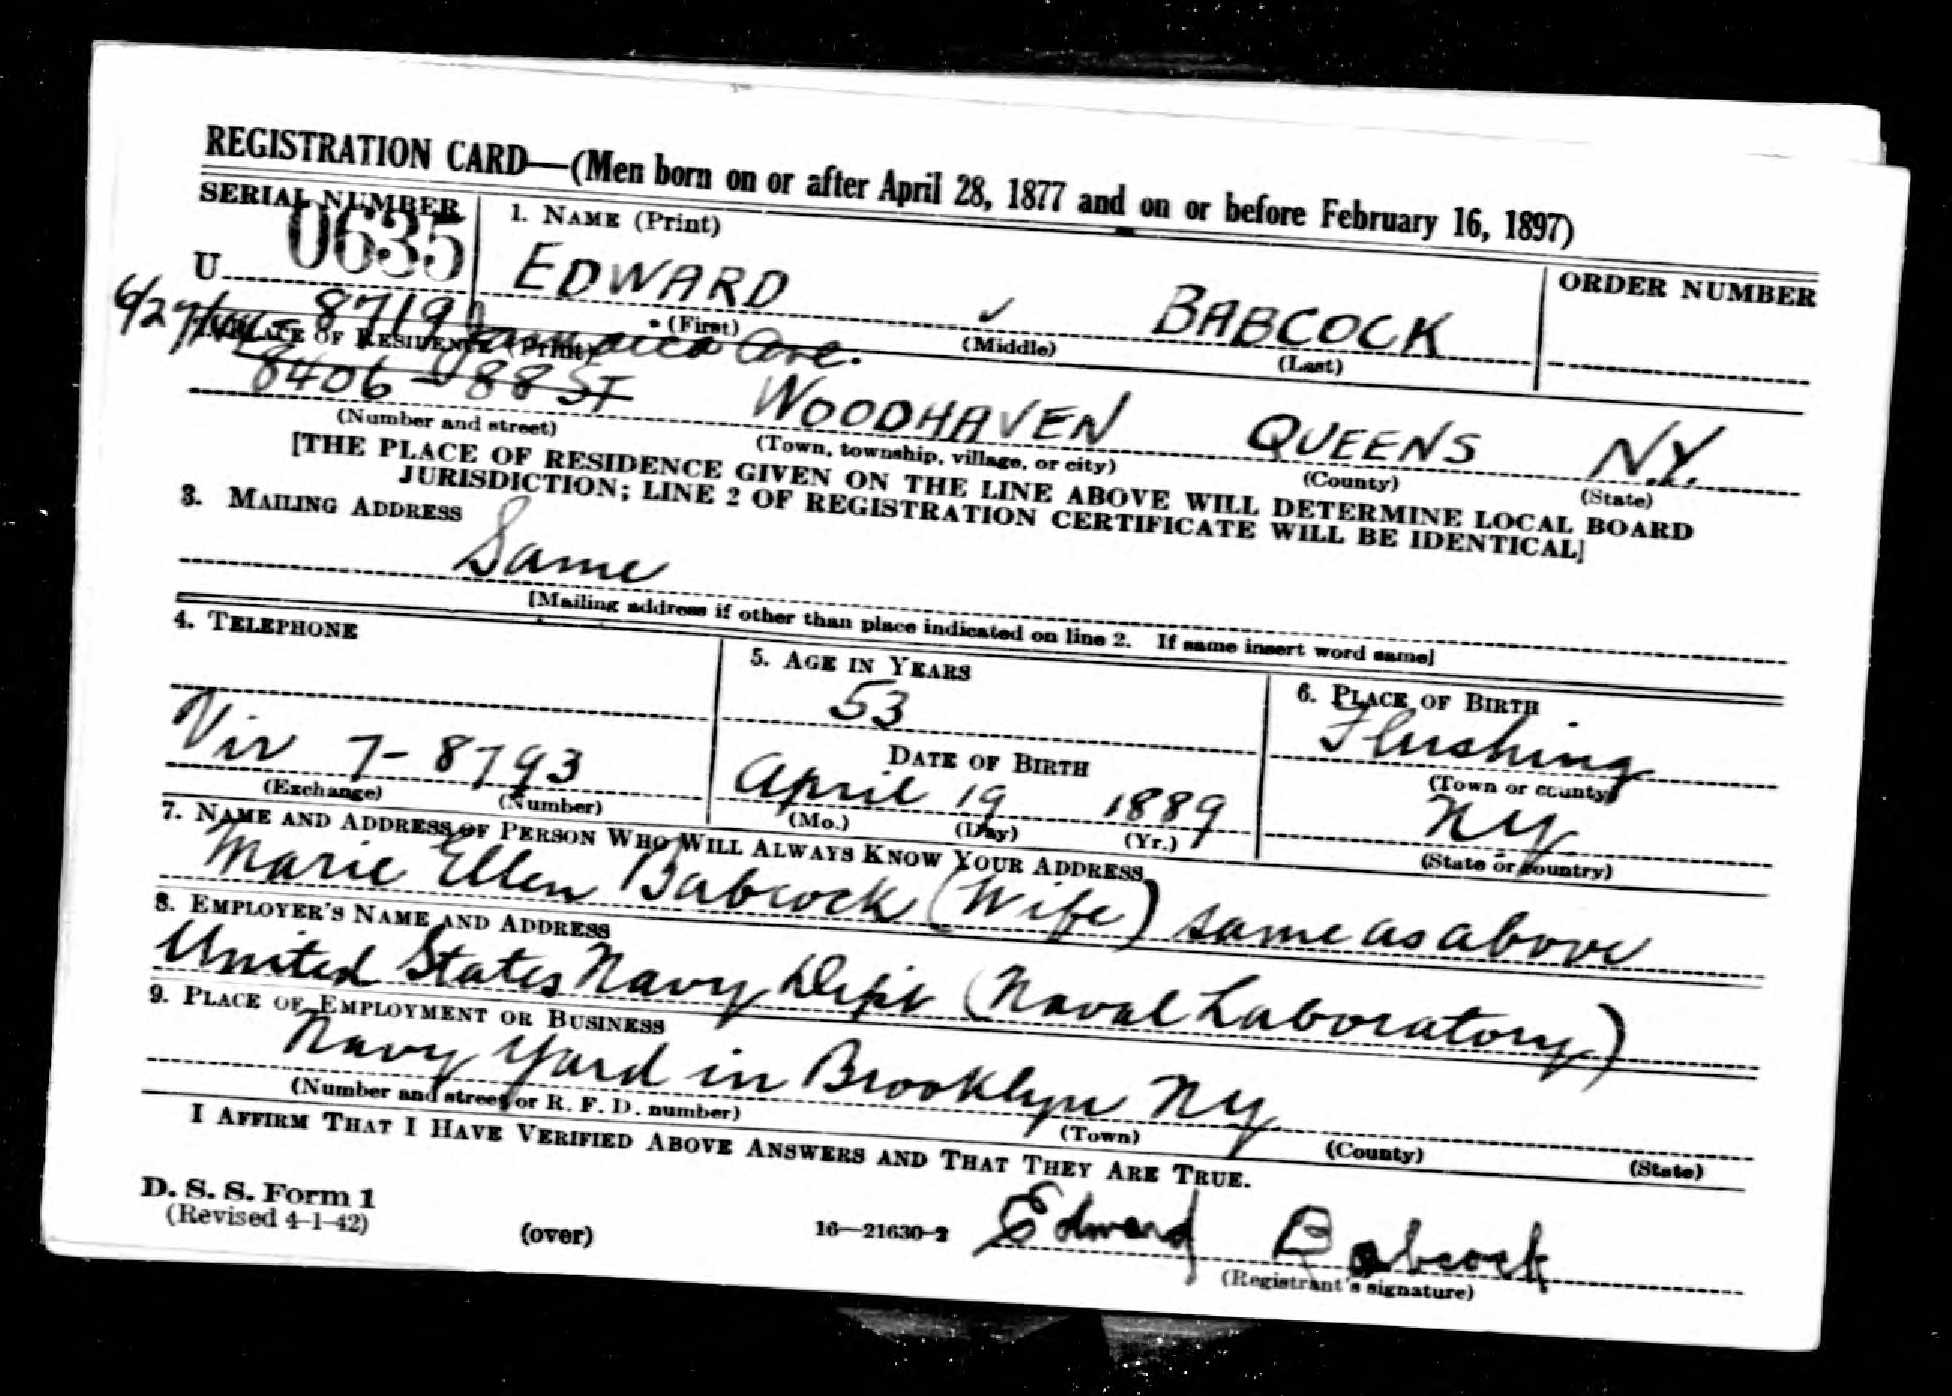 REGISTRATION CARD—(Men born on or after April 28, 1877 and on or before February 16, 1897)
SERIAL NUMBER
0635
U
1. NAME (Print)
EDWARD BABCOCK
(First) (Middle) (Last)
ORDER NUMBER
6/27/ 8719 Jamaica Ave.
PLACE OF RESIDENCE (Print)
8406 - 88 ST WOODHAVEN QUEENS N.Y.
(Number and street) (Town, township, village, or city) (County) (State)
[THE PLACE OF RESIDENCE GIVEN ON THE LINE ABOVE WILL DETERMINE LOCAL BOARD
JURISDICTION; LINE 2 OF REGISTRATION CERTIFICATE WILL BE IDENTICAL]
3. MAILING ADDRESS
Same
[Mailing address if other than place indicated on line 2. If same insert word same]
4. TELEPHONE
Vir 7-8793
(Exchange) (Number)
5. AGE IN YEARS
53
DATE OF BIRTH
April 19 1889
(Mo.) (Day) (Yr.)
6. PLACE OF BIRTH
Flushing
(Town or county)
NY
(State or country)
7. NAME AND ADDRESS OF PERSON WHO WILL ALWAYS KNOW YOUR ADDRESS
Marie Ellen Babcock (Wife) same as above
8. EMPLOYER'S NAME AND ADDRESS
United States Navy Dept (Naval Laboratory)
9. PLACE OF EMPLOYMENT OR BUSINESS
Navy Yard in Brooklyn NY
(Number and street or R. F. D. number) (Town) (County) (State)
I AFFIRM THAT I HAVE VERIFIED ABOVE ANSWERS AND THAT THEY ARE TRUE.
D. S. S. Form 1
(Revised 4-1-42) (over) 16—21630-2
Edward Babcock
(Registrant's signature)